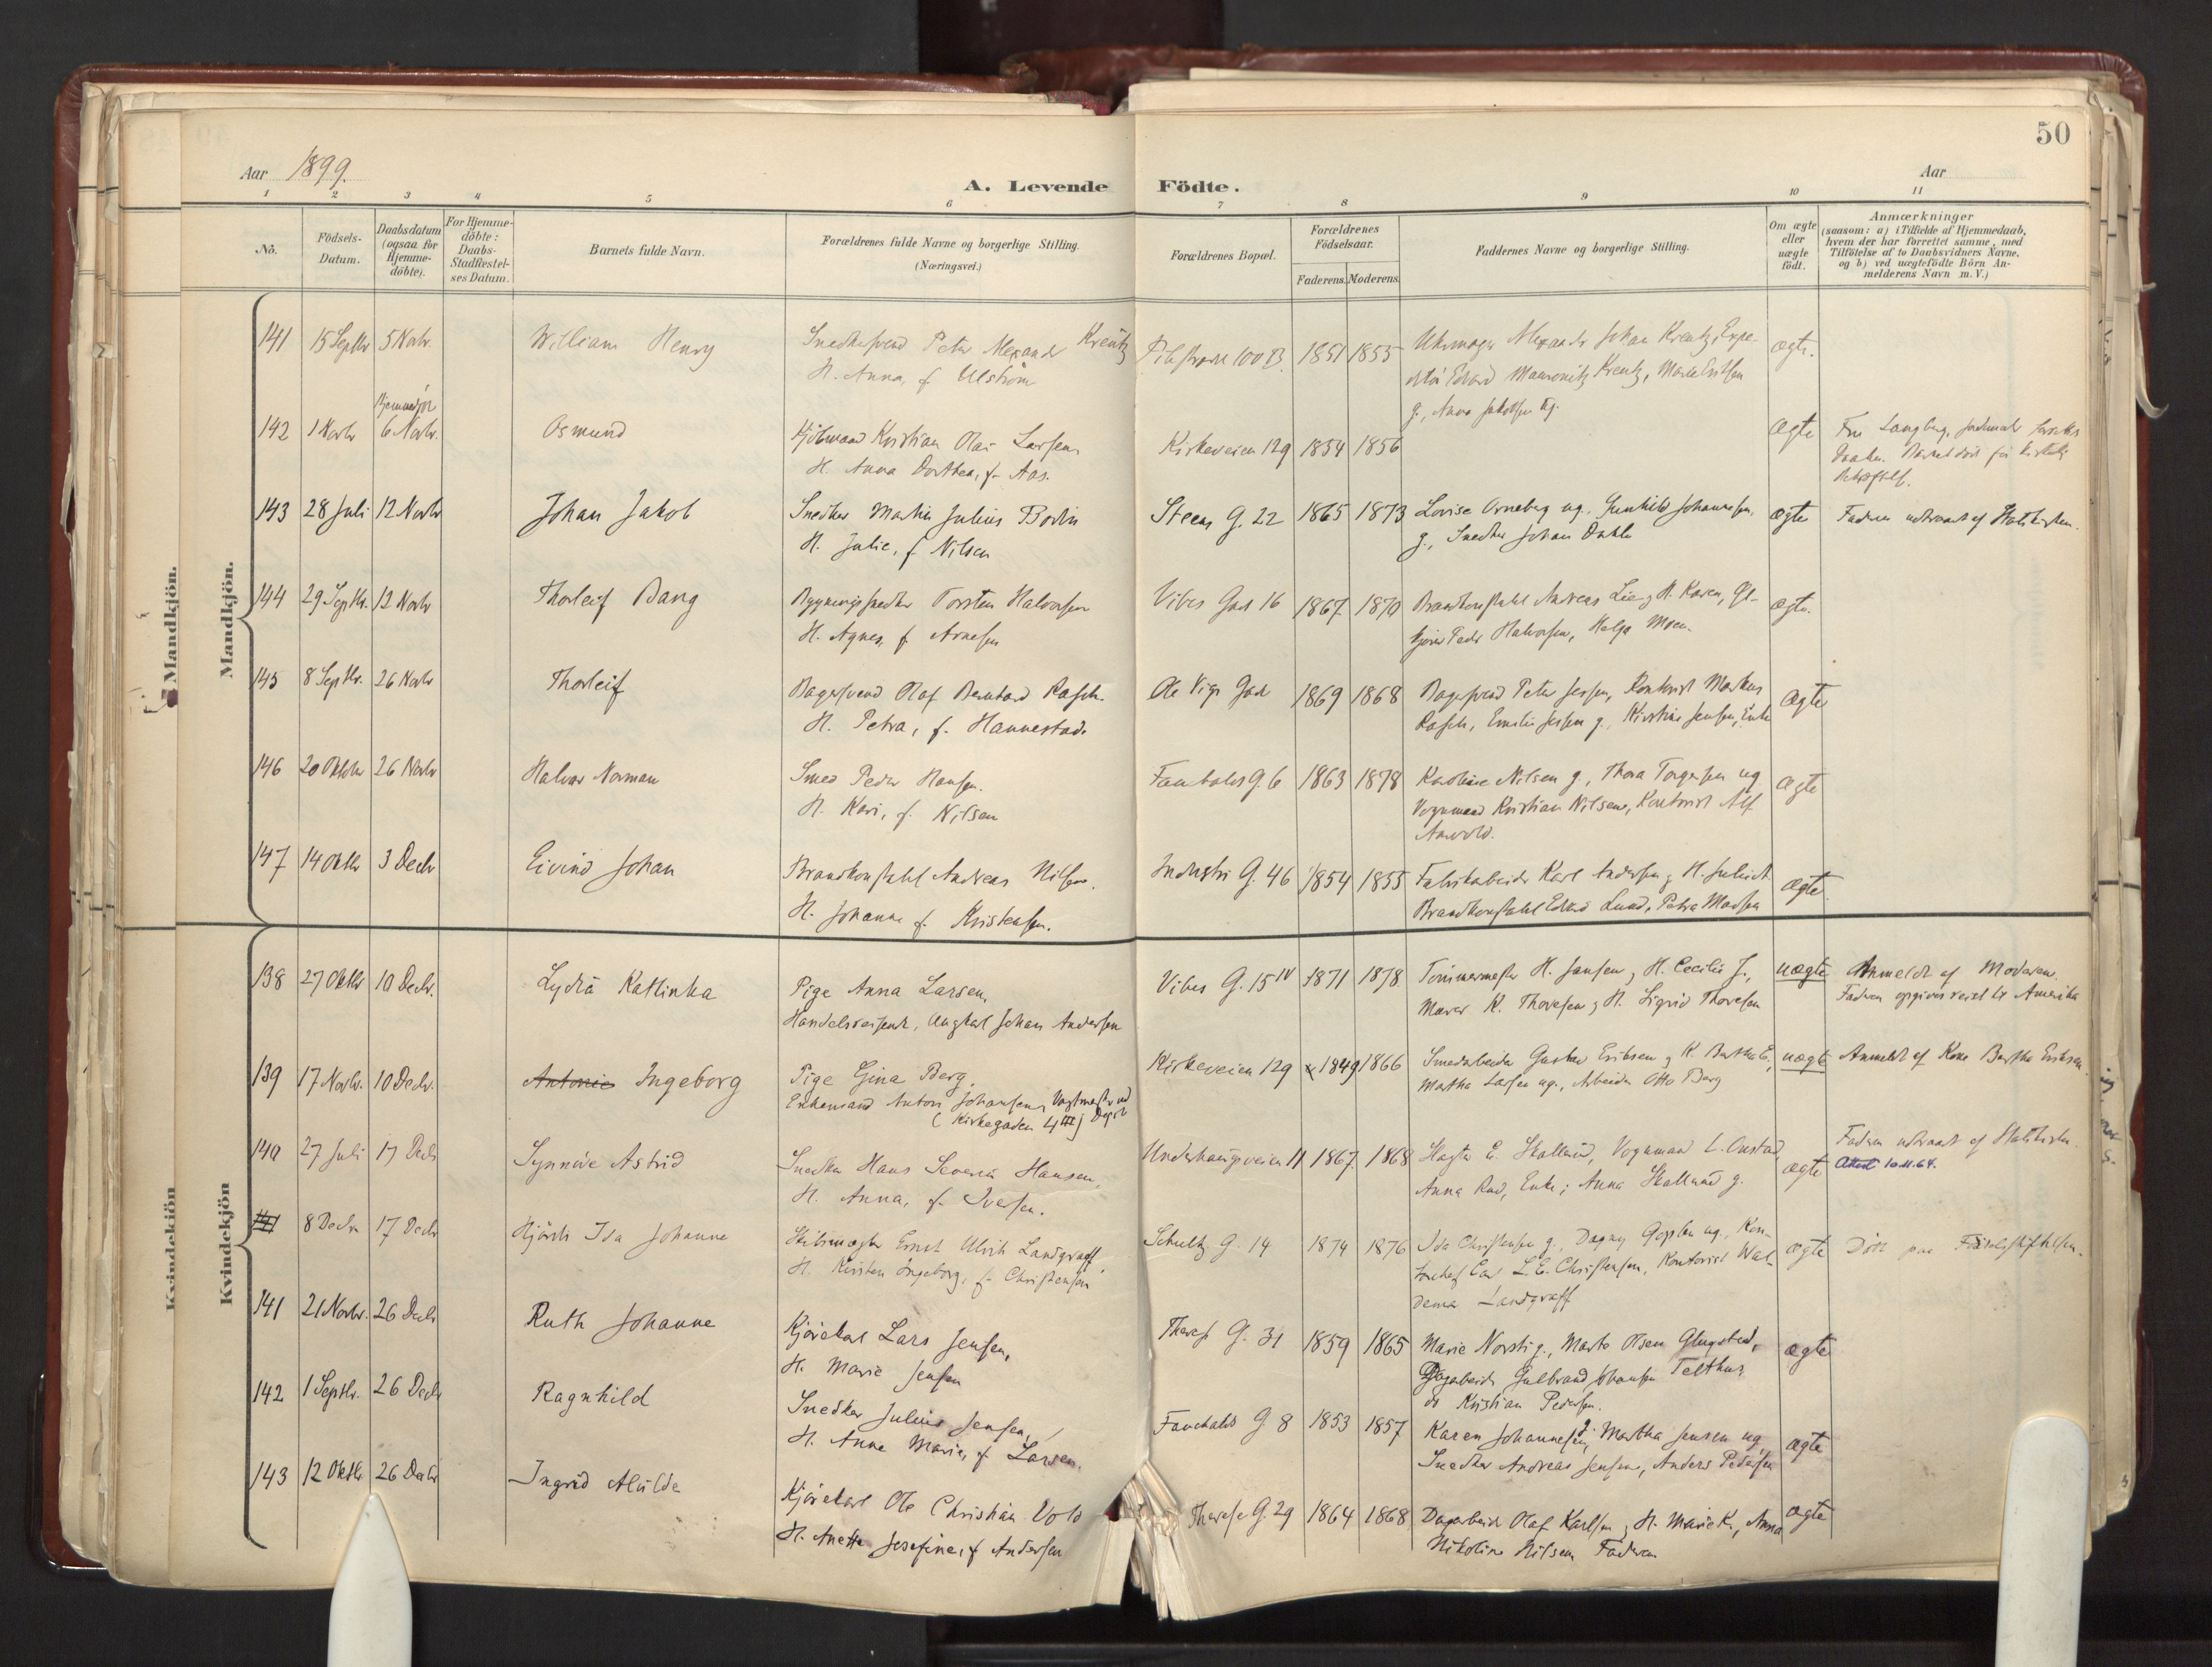 50
Aar 1899.
Aar
A. Levende Födte.
1 2 3 4 5 6 7 8 9 10 11
Nô.
Födsels-Datum.
Daabsdatum (ogsaa for Hjemme-döbte).
For Hjemme-döbte: Daabs-Stadfæstel-ses Datum.
Barnets fulde Navn.
Forældrenes fulde Navne og borgerlige Stilling.
(Næringsvei.)
Forældrenes Bopæl.
Forældrenes Födselsaar.
Faderens. Moderens.
Faddernes Navne og borgerlige Stilling.
Om ægte eller uægte födt.
Anmærkninger
(saasom: a) i Tilfælde af Hjemmedaab,
hvem der har forrettet samme, med
Tilföielse af to Daabsvidners Navne,
og b) ved uægtefödte Börn An-
melderens Navn m.V.)
Mandkjön.
Mandkjön.
141 15 Septbr 5 Novbr. William Henry Snedkersvend Peter Alexander Kreutz
H. Anna, f. Ulström
Pilestrædet 100 B. 1851 1855 Uhrmager Alexander Johan Kreutz, Expe-
ditör Edvard Kreutz,
g., Anna Jakobsen ug.
ægte.
142 1 Novbr Hjemmedöbt 6 Novbr. Osmund Kjöbmand Kristian Olai Larsen
H. Anna Dorthea, f. Aas.
Kirkeveien 129 1854 1856 ægte Fru Langberg,
143 28 Juli 12 Novbr Johan Jakob Snedker Martin Julius Bodin
H. Julie, f. Nilsen
Steens G. 22 1865 1873 Lovise Arneberg ug. Gunhild Johannesen,
g., Snedker Johan Dahl
ægte Faderen udtraadt af Statskirken.
144 29 Septbr. 12 Novbr Thorleif Bang Bygningssnedker Torsten Halvorsen
H. Agnes, f. Arnesen
Vibes Gade 16 1867 1870 Brandkonstabel Andreas Lie og H. Karen,
Peder Halvorsen, Helga Moen.
ægte.
145 8 Septbr. 26 Novbr Thorleif Bagersvend Olaf Bernhard Rasch.
H. Petra, f. Hannestad.
Ole Vigs Gade 1869 1868 Bagersvend Peter Jessen, Kontorist Markus
Rasch, Emilie Jessen g., Kirstine Jensen, Enke
ægte
146 20 Oktober 26 Novbr Halvor Norman Smed Peder Hansen.
H. Kari, f. Nilsen
Fauchalds G. 6 1863 1878 Karoline Nilsen g., Thora Torgersen ug
Vognmand Kristian Nilsen, Kontorist Alf
ægte
147 14 Oktbr 3 Decbr Eivind Johan Brandkonstabel Andreas Nilsen.
H. Johanne f. Kristensen.
Industri G. 46 1854 1855 Fabrikarbeider Karl Andersen og H.
Brandkonstabel Edvard Lund, Petra Madsen
ægte.
Kvindekjön
Kvindekjön
138 27 Oktbr 10 Decbr. Lydia Katinka Pige Anna Larsen,
Handelsreisende, Ungkarl Johan Andersen
Vibes G. 15 IV 1871 1878 Tömmermester H. Jansen og H. Cecilie J.,
Murer K. Thoresen og H. Sigrid Thoresen
uægte Anmeldt af Moderen.
Faderen opgives reist til Amerika
139 17 Novbr. 10 Decbr. Antonie Ingeborg Pige Gina Berg.
Enkemand Anton Johansen, Vagtmester ved
(Kirkegaden 4 III) Depot
Kirkeveien 129 x 1849 1866 Smedarbeider Gustav Eriksen og H. Bertha E.,
Martha Larsen ug., Arbeider Otto Berg
uægte Anmeldt af Kone Bertha Eriksen.
140 27 Juli 17 Decbr Synnöve Astrid Snedker Hans Severin Hansen,
H. Anna, f. Iversen.
Underhaugsveien 11 1867. 1868 E. Skallerud, Vognmand L. Onstad
Anna Rud, Enke; Anna Skallerud g.
ægte Faderen udtraadt af Statskirken.
Attest 10.11.64.
141 8 Decbr 17 Decbr Hjördis Ida Johanne Skibsmægler Ernst Ulrik Landgraff,
H. Kirsten Ingeborg, f. Christensen
Schultz G. 14 1874 1876 Ida Christensen g., Dagny Goplen ug.,
Carl L.E. Christensen, Kontorist Wal-
demar Landgraff
ægte Döbt paa Födselsstiftelsen.
141 21 Novbr. 26 Decbr Ruth Johanne Kjörekarl Lars Jensen,
H. Marie Jensen
Therese G. 31 1859 1865 Marie Norsti g., Marta Olsen Glugstad,
Dagarbeider Gulbrand Johansen Telthus,
do Kristian Pedersen.
ægte
142 1 Septbr. 26 Decbr Ragnhild Snedker Julius Jensen,
H. Anne Marie, f. Larsen.
Fauchalds G 8 1853 1857 Karen Johannesen g, Martha Jensen ug
Snedker Andreas Jensen, Anders Pedersen
ægte
143 12 Oktbr. 26 Decbr Ingrid Alvilde Kjörekarl Ole Christian Vold
H. Anette Josefine, f Andersen
Therese G. 29 1864 1868 Dagarbeider Olaf Karlsen og H. Marie K., Anna
Nikoline Nilsen Faderen
ægte